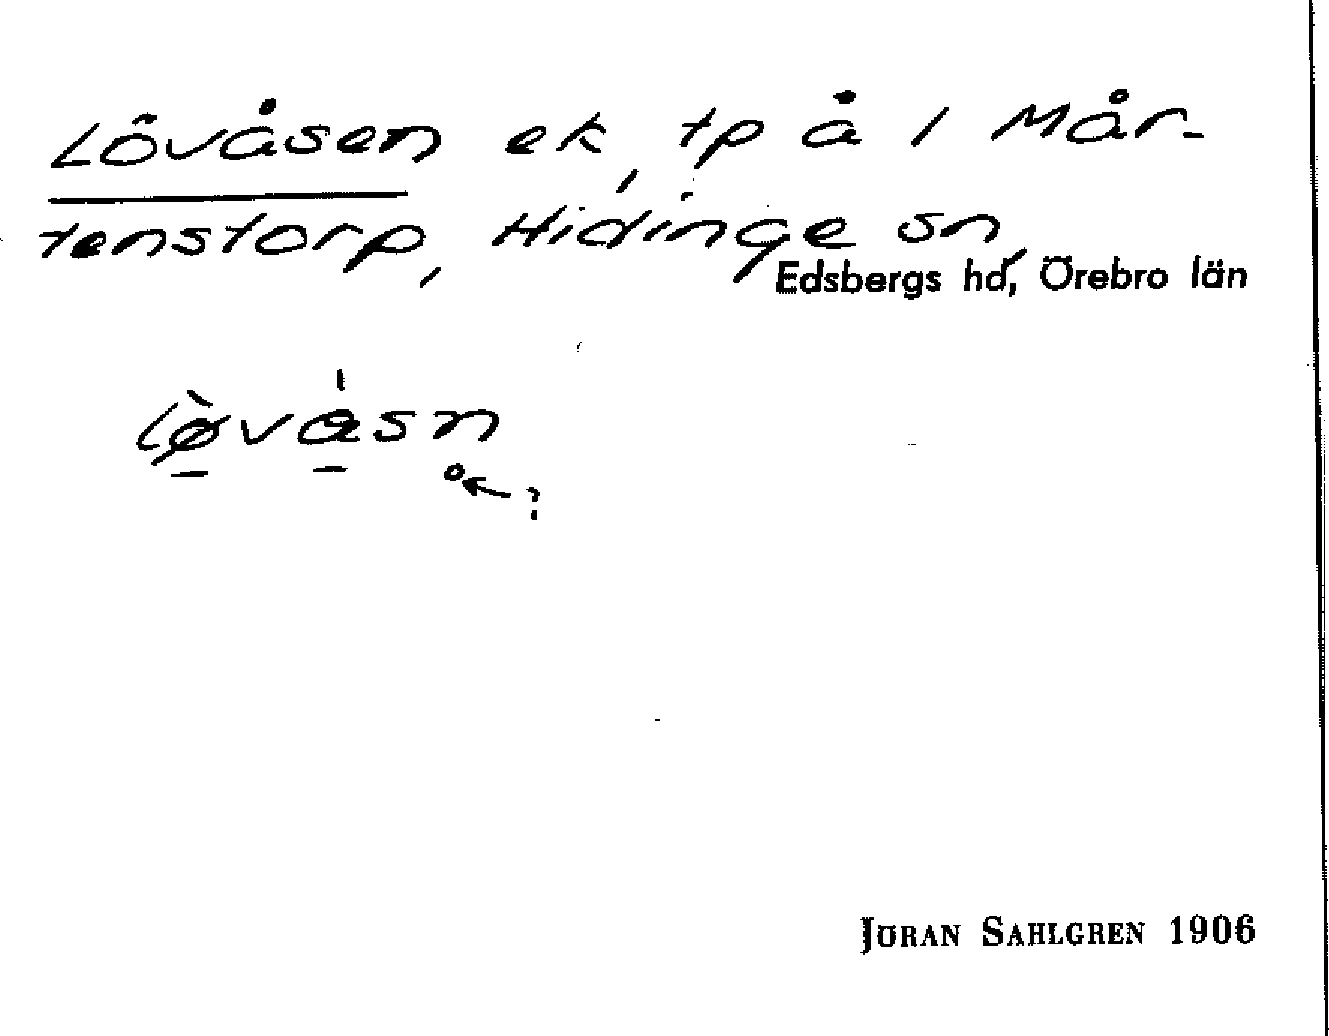 Lövåsen ek, tp å 1 Mår-
tenstorp, Hidinge sn,
Edsbergs hd, Örebro län
lø̠̀va̠̍sn̥ ←?
JÖRAN SAHLGREN 1906